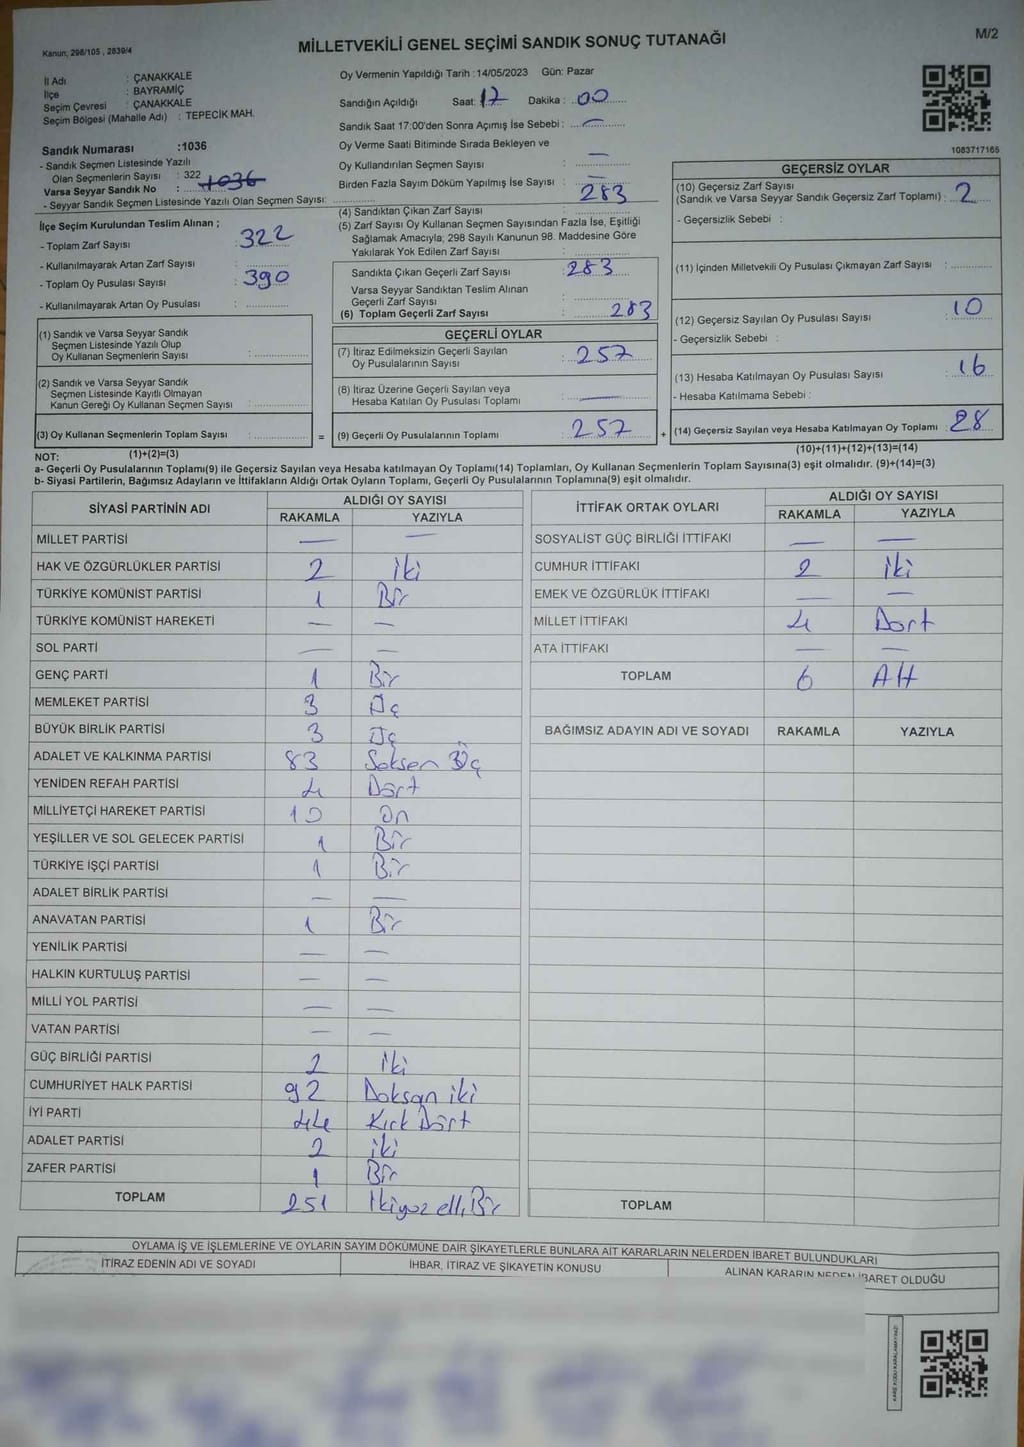 Kanun; 298/105 , 2839/4
MİLLETVEKİLİ GENEL SEÇİMİ SANDIK SONUÇ TUTANAĞI
M/2
İl Adı : ÇANAKKALE
İlçe : BAYRAMİÇ
Seçim Çevresi : ÇANAKKALE
Seçim Bölgesi (Mahalle Adı) : TEPECİK MAH.
Oy Vermenin Yapıldığı Tarih : 14/05/2023 Gün: Pazar
Sandığın Açıldığı Saat: 17 Dakika : 00
Sandık Saat 17:00'den Sonra Açımış İse Sebebi : —
Oy Verme Saati Bitiminde Sırada Bekleyen ve
Oy Kullandırılan Seçmen Sayısı : —
Birden Fazla Sayım Döküm Yapılmış İse Sayısı : —
1083717165
Sandık Numarası :1036
- Sandık Seçmen Listesinde Yazılı
Olan Seçmenlerin Sayısı : 322
Varsa Seyyar Sandık No : 1036
- Seyyar Sandık Seçmen Listesinde Yazılı Olan Seçmen Sayısı:
İlçe Seçim Kurulundan Teslim Alınan ;
- Toplam Zarf Sayısı : 322
- Kullanılmayarak Artan Zarf Sayısı :
- Toplam Oy Pusulası Sayısı : 390
- Kullanılmayarak Artan Oy Pusulası :
(1) Sandık ve Varsa Seyyar Sandık
Seçmen Listesinde Yazılı Olup
Oy Kullanan Seçmenlerin Sayısı :
(2) Sandık ve Varsa Seyyar Sandık
Seçmen Listesinde Kayıtlı Olmayan
Kanun Gereği Oy Kullanan Seçmen Sayısı :
(3) Oy Kullanan Seçmenlerin Toplam Sayısı :
(4) Sandıktan Çıkan Zarf Sayısı : 283
(5) Zarf Sayısı Oy Kullanan Seçmen Sayısından Fazla İse, Eşitliği
Sağlamak Amacıyla; 298 Sayılı Kanunun 98. Maddesine Göre
Yakılarak Yok Edilen Zarf Sayısı :
Sandıkta Çıkan Geçerli Zarf Sayısı : 283
Varsa Seyyar Sandıktan Teslim Alınan
Geçerli Zarf Sayısı :
(6) Toplam Geçerli Zarf Sayısı : 283
GEÇERLİ OYLAR
(7) İtiraz Edilmeksizin Geçerli Sayılan
Oy Pusulalarının Sayısı : 257
(8) İtiraz Üzerine Geçerli Sayılan veya
Hesaba Katılan Oy Pusulası Toplamı : —
= (9) Geçerli Oy Pusulalarının Toplamı : 257 +
GEÇERSİZ OYLAR
(10) Geçersiz Zarf Sayısı
(Sandık ve Varsa Seyyar Sandık Geçersiz Zarf Toplamı) : 2
- Geçersizlik Sebebi :
(11) İçinden Milletvekili Oy Pusulası Çıkmayan Zarf Sayısı :
(12) Geçersiz Sayılan Oy Pusulası Sayısı : 10
- Geçersizlik Sebebi :
(13) Hesaba Katılmayan Oy Pusulası Sayısı : 16
- Hesaba Katılmama Sebebi :
(14) Geçersiz Sayılan veya Hesaba Katılmayan Oy Toplamı : 28
NOT: (1)+(2)=(3) (10)+(11)+(12)+(13)=(14)
a- Geçerli Oy Pusulalarının Toplamı(9) ile Geçersiz Sayılan veya Hesaba katılmayan Oy Toplamı(14) Toplamları, Oy Kullanan Seçmenlerin Toplam Sayısına(3) eşit olmalıdır. (9)+(14)=(3)
b- Siyasi Partilerin, Bağımsız Adayların ve İttifakların Aldığı Ortak Oyların Toplamı, Geçerli Oy Pusulalarının Toplamına(9) eşit olmalıdır.
SİYASİ PARTİNİN ADI ALDIĞI OY SAYISI
RAKAMLA YAZIYLA
MİLLET PARTİSİ — —
HAK VE ÖZGÜRLÜKLER PARTİSİ 2 İki
TÜRKİYE KOMÜNİST PARTİSİ 1 Bir
TÜRKİYE KOMÜNİST HAREKETİ — —
SOL PARTİ — —
GENÇ PARTİ 1 Bir
MEMLEKET PARTİSİ 3 Üç
BÜYÜK BİRLİK PARTİSİ 3 Üç
ADALET VE KALKINMA PARTİSİ 83 Seksen Üç
YENİDEN REFAH PARTİSİ 4 Dört
MİLLİYETÇİ HAREKET PARTİSİ 10 On
YEŞİLLER VE SOL GELECEK PARTİSİ 1 Bir
TÜRKİYE İŞÇİ PARTİSİ 1 Bir
ADALET BİRLİK PARTİSİ — —
ANAVATAN PARTİSİ 1 Bir
YENİLİK PARTİSİ — —
HALKIN KURTULUŞ PARTİSİ — —
MİLLİ YOL PARTİSİ — —
VATAN PARTİSİ — —
GÜÇ BİRLİĞİ PARTİSİ 2 İki
CUMHURİYET HALK PARTİSİ 92 Doksan iki
İYİ PARTİ 44 Kırk Dört
ADALET PARTİSİ 2 iki
ZAFER PARTİSİ 1 Bir
TOPLAM 251 İkiyüz elli Bir
İTTİFAK ORTAK OYLARI ALDIĞI OY SAYISI
RAKAMLA YAZIYLA
SOSYALİST GÜÇ BİRLİĞİ İTTİFAKI — —
CUMHUR İTTİFAKI 2 İki
EMEK VE ÖZGÜRLÜK İTTİFAKI — —
MİLLET İTTİFAKI 4 Dört
ATA İTTİFAKI — —
TOPLAM 6 Altı
BAĞIMSIZ ADAYIN ADI VE SOYADI RAKAMLA YAZIYLA
TOPLAM
OYLAMA İŞ VE İŞLEMLERİNE VE OYLARIN SAYIM DÖKÜMÜNE DAİR ŞİKAYETLERLE BUNLARA AİT KARARLARIN NELERDEN İBARET BULUNDUKLARI
İTİRAZ EDENİN ADI VE SOYADI İHBAR, İTİRAZ VE ŞİKAYETİN KONUSU ALINAN KARARIN NEDEN İBARET OLDUĞU